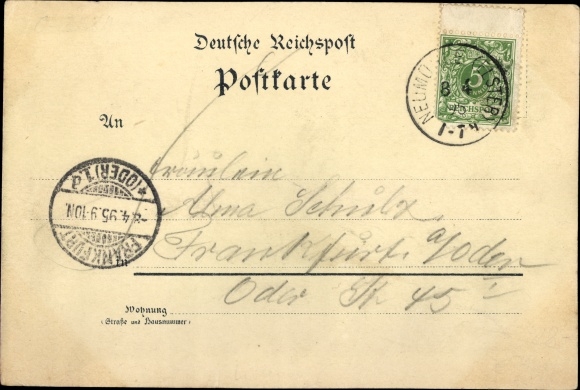 Deutsche Reichspost
Postkarte
An
Fräulein
Alma Schulz
Frankfurt a/Oder
in
Oder Str 45
Wohnung
(Straße und Hausnummer)
5
8 4
1-7 N
FRANKFURT
* (ODER) 1.d
8.4.95.9-10N.